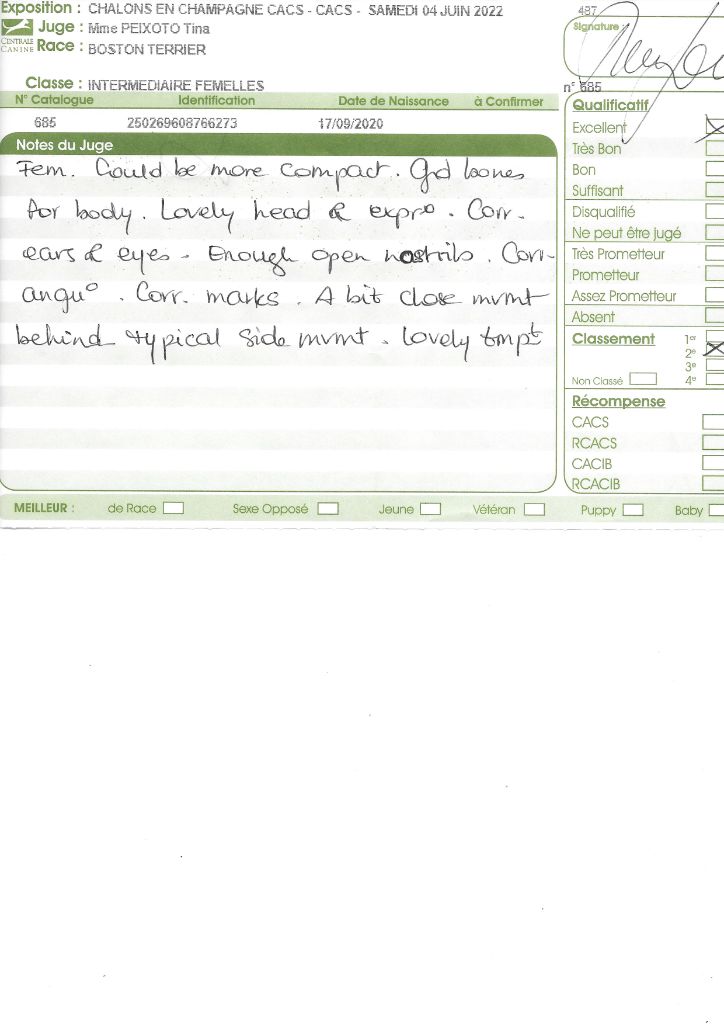 Exposition : CHALONS EN CHAMPAGNE CACS - CACS - SAMEDI 04 JUIN 2022
Juge : Mme PEIXOTO Tina
CENTRALE CANINE
Race : BOSTON TERRIER
487
Signature
Classe : INTERMEDIAIRE FEMELLES
n° 685
N° Catalogue Identification Date de Naissance à Confirmer
685 250269608766273 17/09/2020
Notes du Juge
Fem. Could be more compact. Gd bones
for body. Lovely head & expr°. Corr.
ears & eyes - Enough open nostrils. Corr.
angu°. Corr. marks. A bit close mvmt
behind typical side mvmt. Lovely tmpt
Qualificatif
Excellent
Très Bon
Bon
Suffisant
Disqualifié
Ne peut être jugé
Très Prometteur
Prometteur
Assez Prometteur
Absent
Classement 1er
2e
3e
Non Classé 4e
Récompense
CACS
RCACS
CACIB
RCACIB
MEILLEUR : de Race Sexe Opposé Jeune Vétéran Puppy Baby